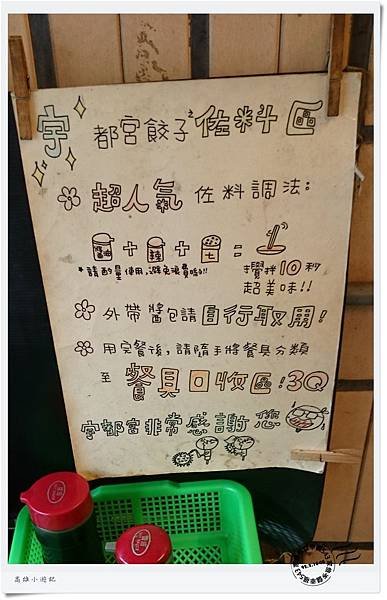 宇都宮餃子佐料區
超人氣 佐料調法:
醬油 + 辣 + 七 =
*請酌量使用,避免浪費唷!!
攪拌10秒
超美味!!
外帶醬包請自行取用!
用完餐後,請隨手將餐具分類
至餐具回收區!3Q
宇都宮非常感謝您
高雄小遊記